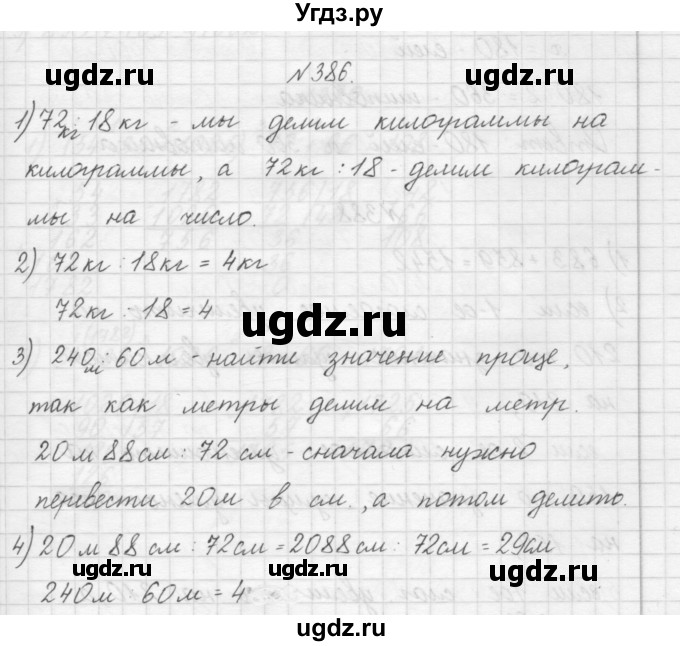 Угдз.ру
ugdz.ru ugdz.ru
№386.
1) 72кг : 18кг - мы делим килограммы на
килограммы, а 72кг : 18 - делим килограм-
мы на число.
2) 72кг : 18кг = 4кг
72кг : 18 = 4
ugdz.ru
3) 240м : 60м - найти значение проще,
так как метры делим на метр.
20м 88см : 72см - сначала нужно
перевести 20м в см, а потом делить.
4) 20м 88см : 72см = 2088см : 72см = 29см
ugdz.ru ugdz.ru ugdz.ru
240м : 60м = 4
ugdz.ru